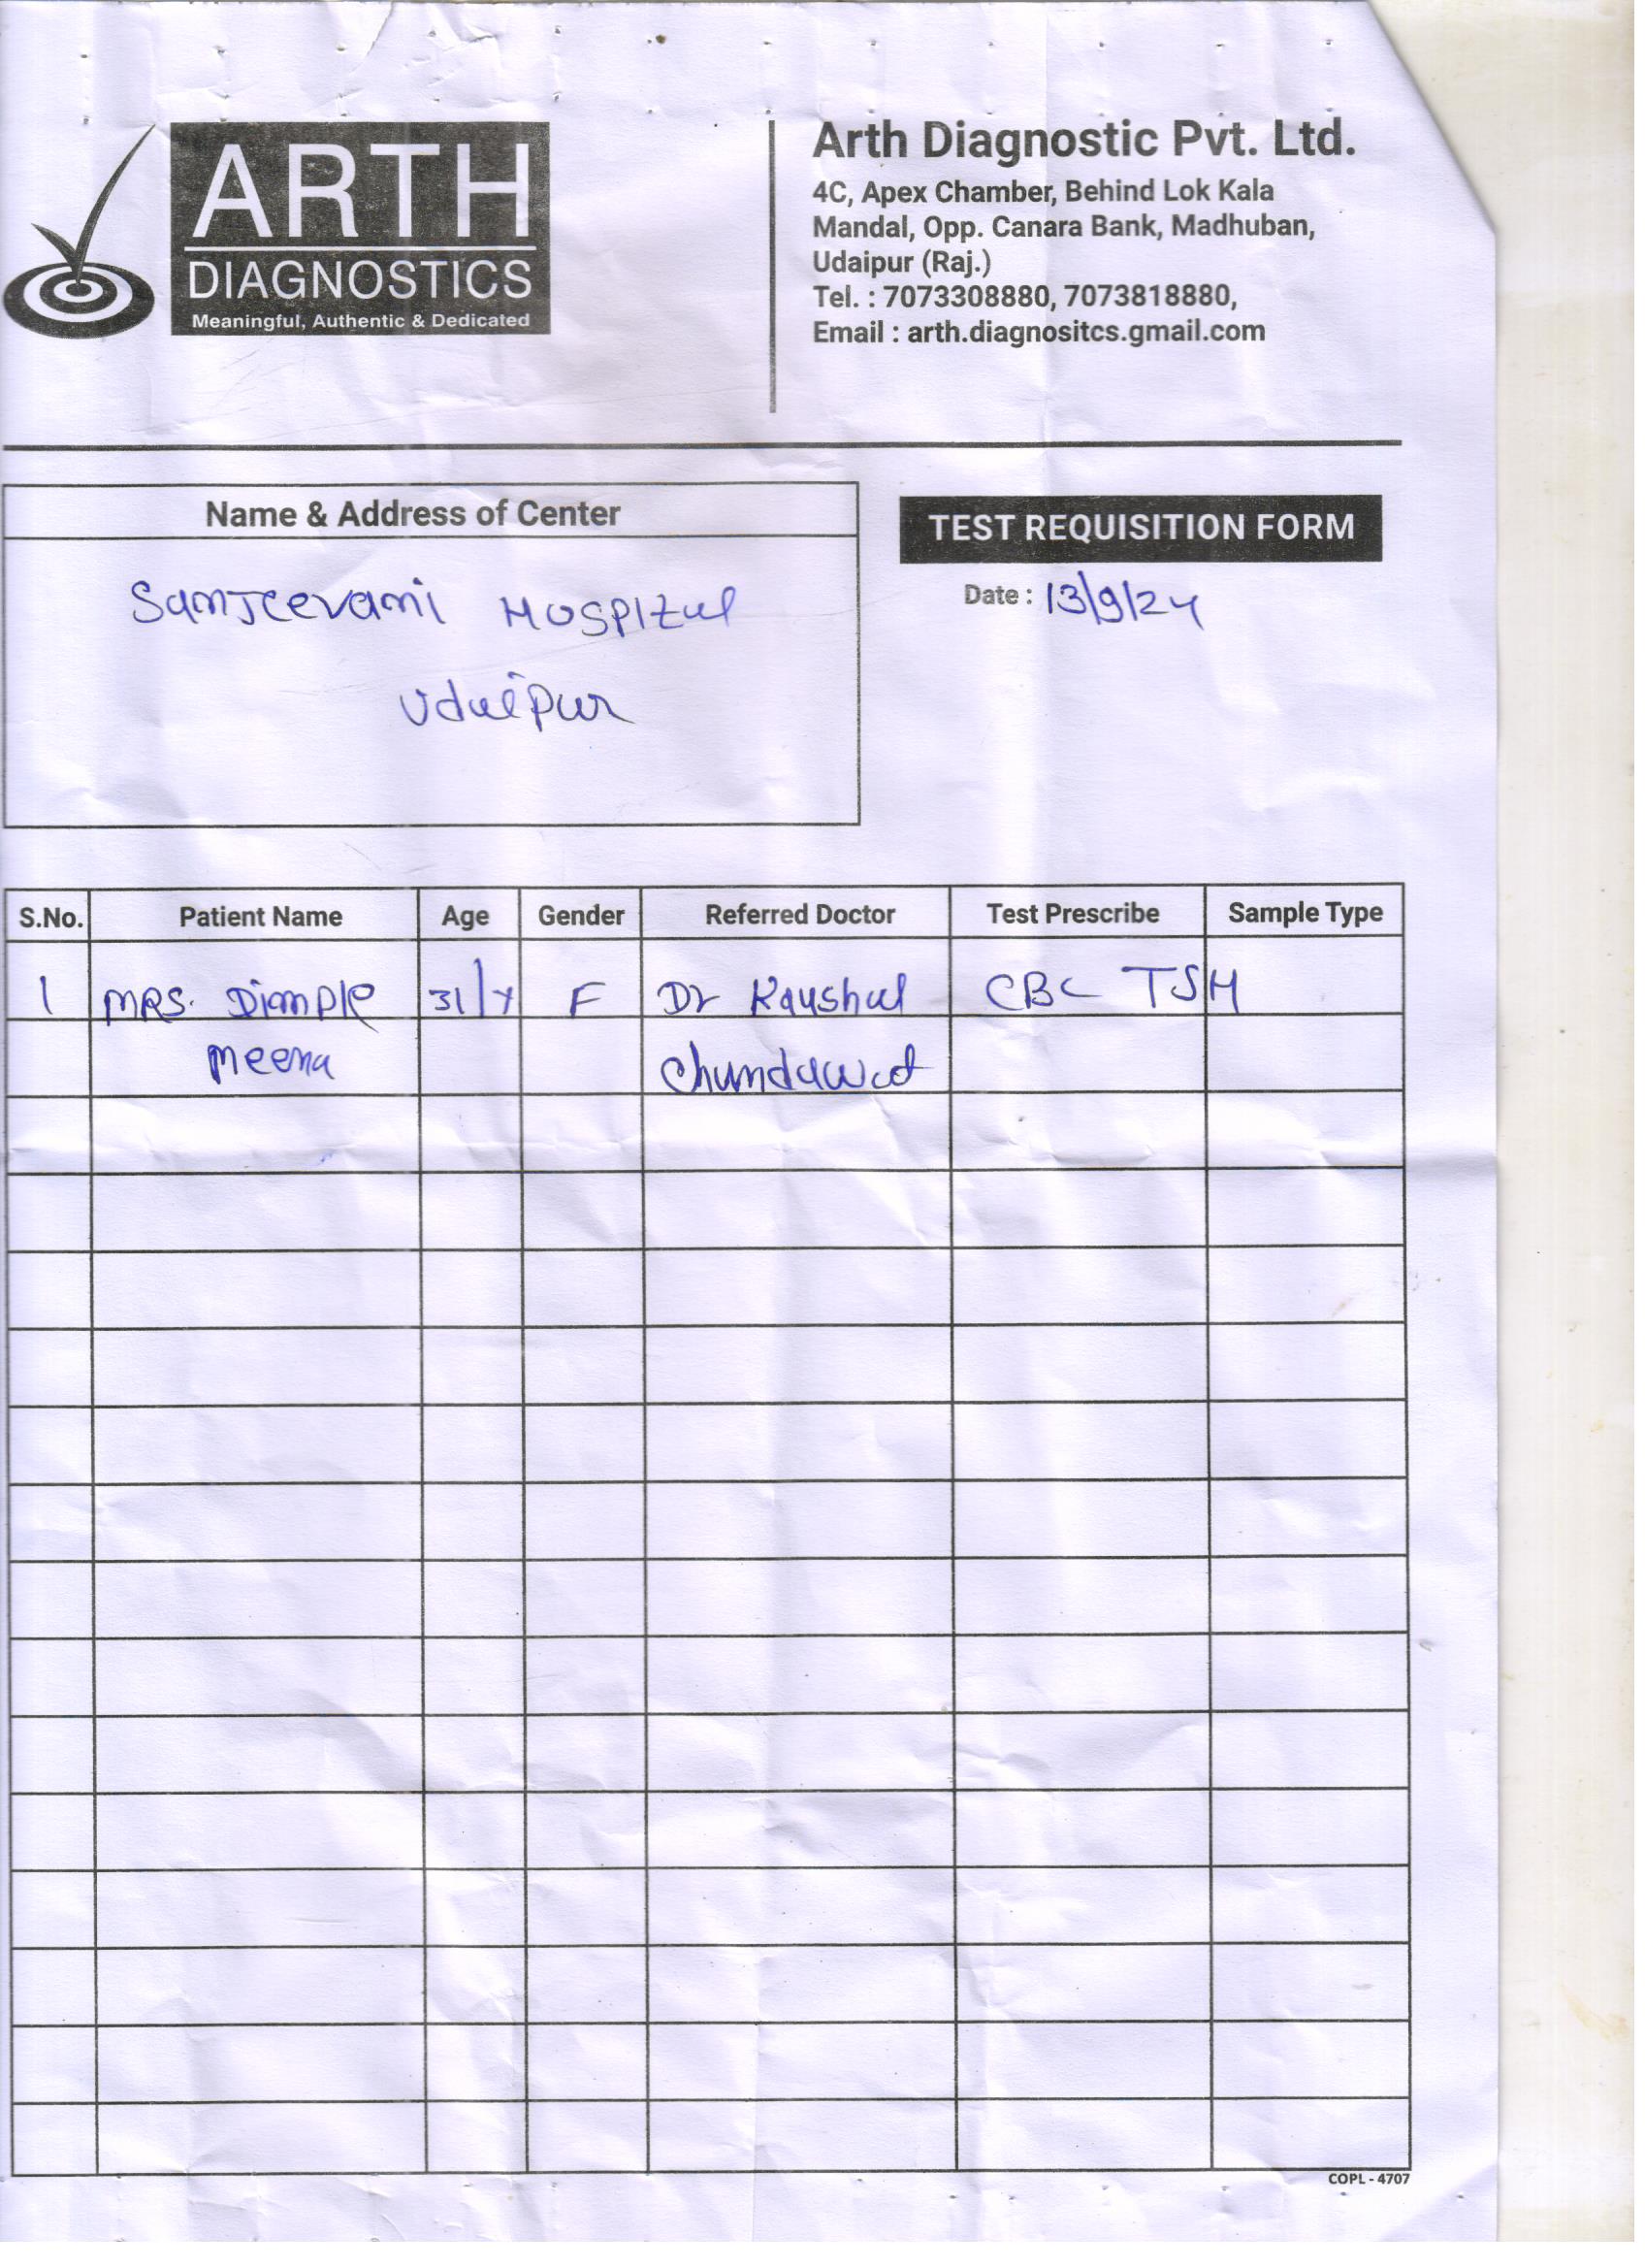 ARTH
DIAGNOSTICS
Meaningful, Authentic & Dedicated
Arth Diagnostic Pvt. Ltd.
4C, Apex Chamber, Behind Lok Kala
Mandal, Opp. Canara Bank, Madhuban,
Udaipur (Raj.)
Tel. : 7073308880, 7073818880,
Email : arth.diagnositcs.gmail.com
Name & Address of Center
Sanjeevani Hospital
Udaipur
TEST REQUISITION FORM
Date : 13/9/24
S.No. Patient Name Age Gender Referred Doctor Test Prescribe Sample Type
1 MRS. Dimple 31/Y F Dr Kaushal CBC TSH
Meena Chundawat
COPL - 4707